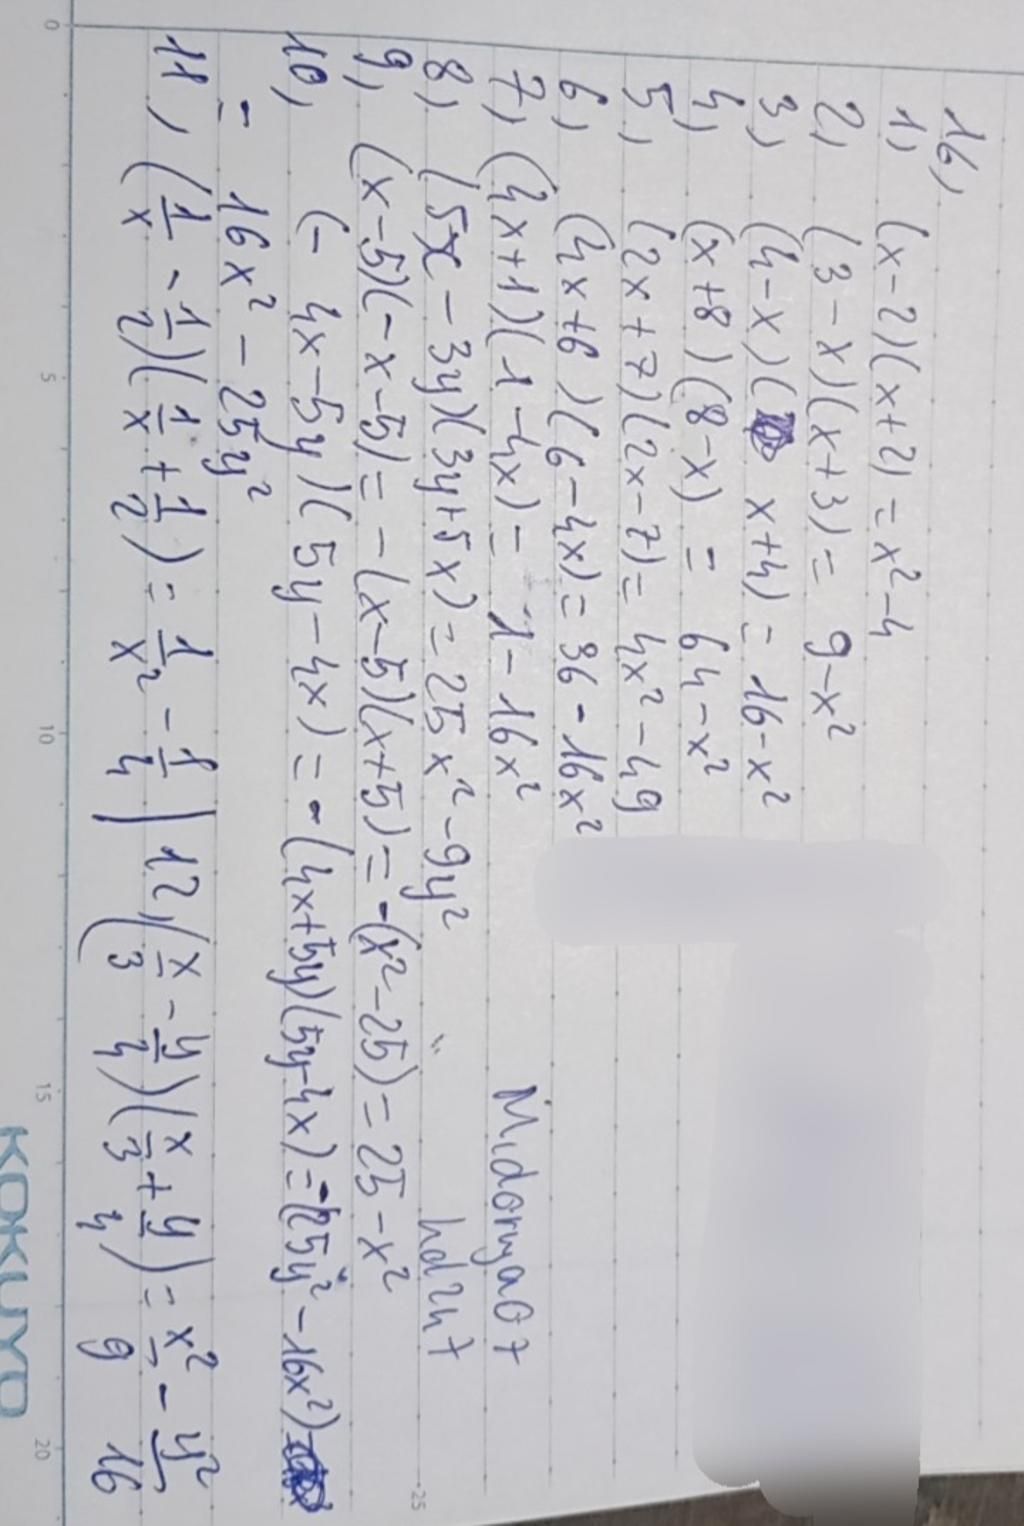 16,
1, (x-2)(x+2) = x²-4
2, (3-x)(x+3) = 9-x²
3, (4-x)(x+4) = 16-x²
4, (x+8)(8-x) = 64-x²
5, (2x+7)(2x-7) = 4x²-49
6, (4x+6)(6-4x) = 36-16x²
7, (4x+1)(1-4x) = 1-16x²
8, (5x-3y)(3y+5x) = 25x²-9y²
9, (x-5)(-x-5) = -(x-5)(x+5) = -(x²-25) = 25-x²
10, (-4x-5y)(5y-4x) = -(4x+5y)(5y-4x) = -(25y²-16x²)
= 16x²-25y²
11, (1/x - 1/2)(1/x + 1/2) = 1/x² - 1/4 | 12, (x/3 - y/4)(x/3 + y/4) = x²/9 - y²/16
Midorya07
hd2h7
0 5 10 15 20
25
KOKUYO